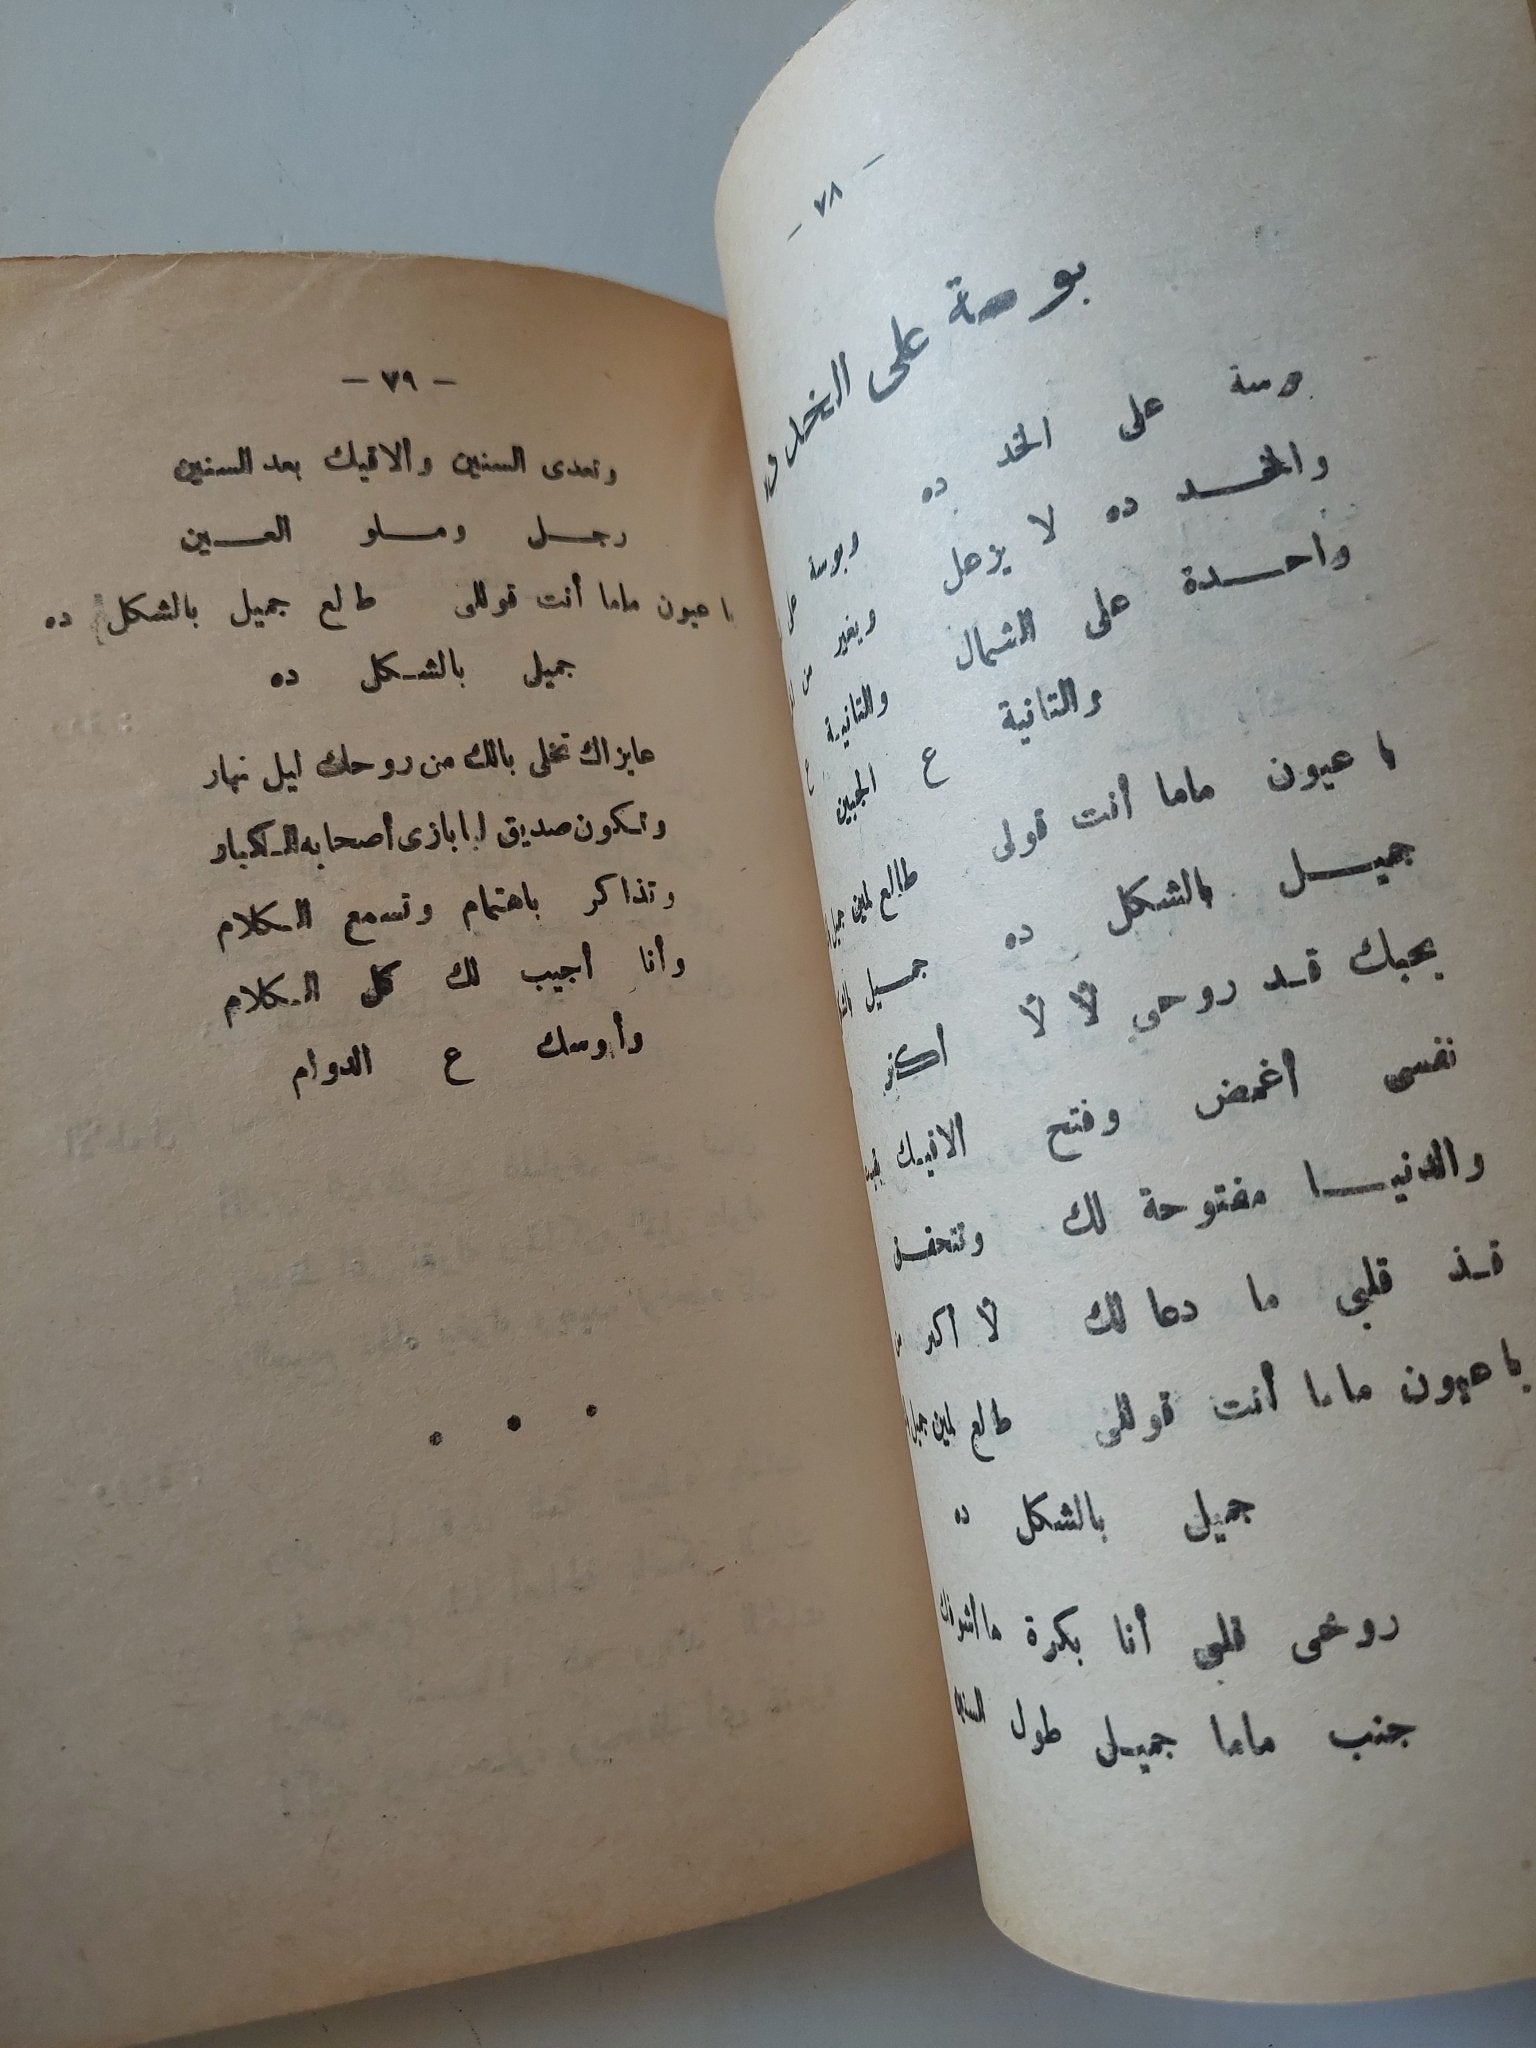 - ٧٨ -
بوسة على الخد ده
بوسة على الخد ده وبوسة على
والخد ده لا يزعل ويغير من
واحدة على الشمال والتانية ع
والتانية ع الجبين
يا عيون ماما أنت قولى طالع لمين جميل
جميل بالشكل ده جميل
بحبك قد روحى لأ لأ أكتر
نفسى أغمض وفتح الاقيك بقيت
والدنيا مفتوحة لك وتتحقق
قد قلبى ما دعا لك لأ أكتر من
يا عيون ماما أنت قوللى طالع لمين جميل
جميل بالشكل ده
روحى قلبى أنا بكرة ها أشوفك
جنب ماما جميل طول السنين
- ٧٩ -
وتعدى السنين والاقيك بعد السنين
رجل وملو العين
يا عيون ماما أنت قوللى طالع جميل بالشكل ده
جميل بالشكل ده
عايزاك تخلى بالك من روحك ليل نهار
وتكون صديق لبابا زى أصحابه الكبار
وتذاكر باهتمام وتسمع الكلام
وأنا أجيب لك كل الكلام
وأبوسك ع الدوام